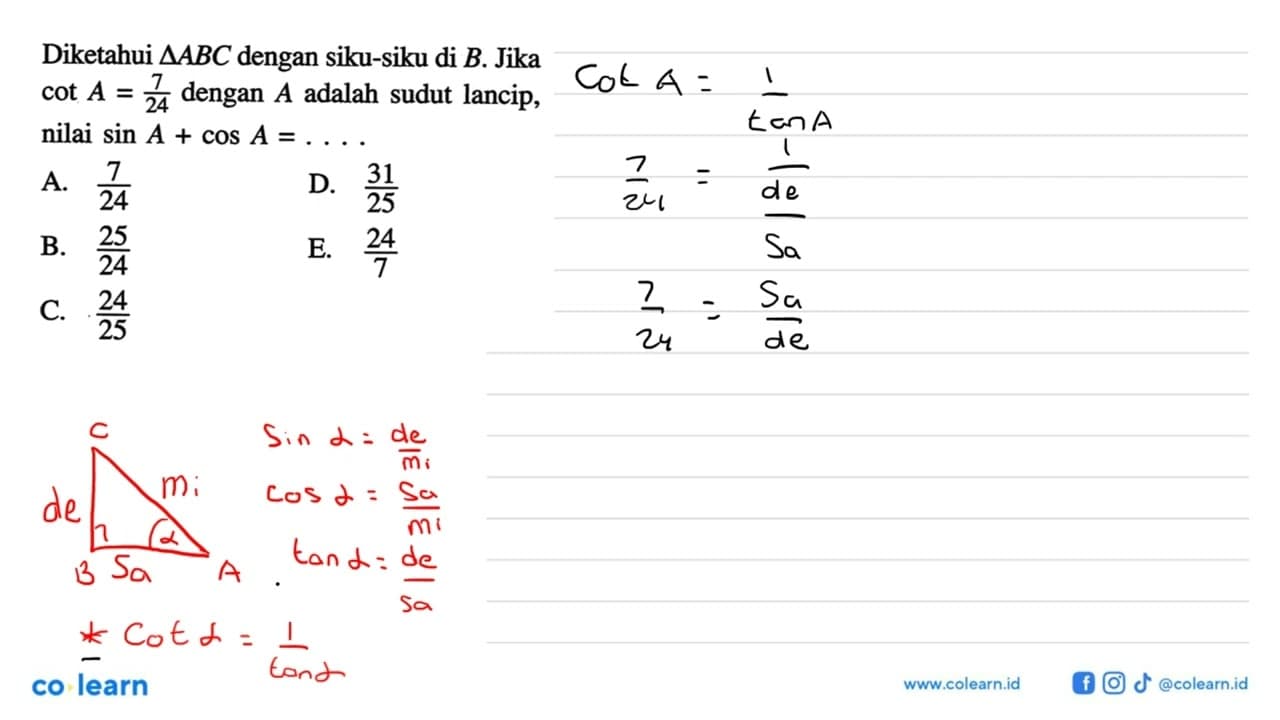 Diketahui ΔABC dengan siku-siku di B. Jika
cot A = 7/24 dengan A adalah sudut lancip,
nilai sin A + cos A = . . . .
A. 7/24
D. 31/25
B. 25/24
E. 24/7
C. 24/25
Cot A = 1/tan A
7/24 = 1/(de/sa)
7/24 = sa/de
C
de
mi
α
B sa A
Sin α = de/mi
cos α = sa/mi
tan α = de/sa
* Cot α = 1/tan α
co learn
www.colearn.id
@colearn.id